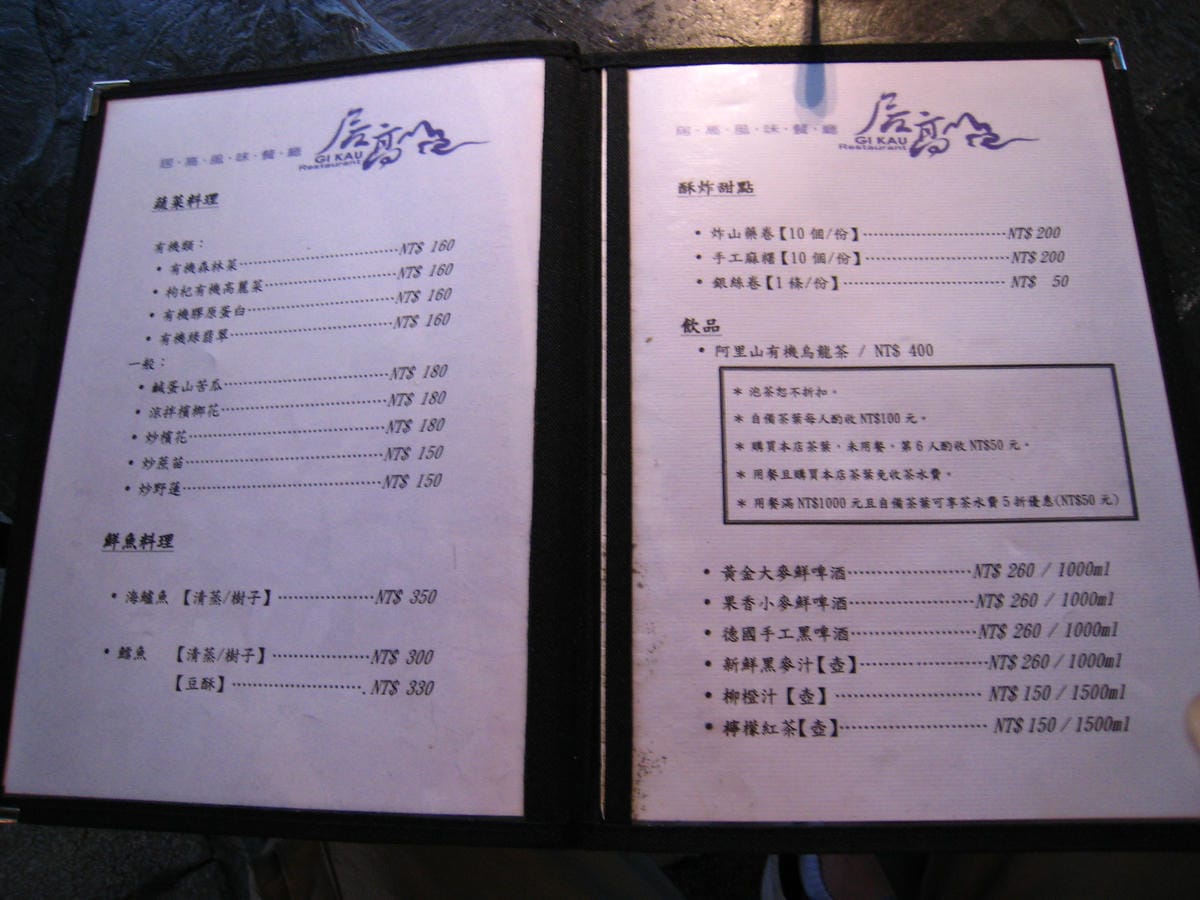 居·高·風·味·餐·廳
居高
GI KAU
Restaurant
蔬菜料理
有機類：
• 有機森林菜 NT$ 160
• 枸杞有機高麗菜 NT$ 160
• 有機膠原蛋白 NT$ 160
• 有機綠翡翠 NT$ 160
一般：
• 鹹蛋山苦瓜 NT$ 180
• 涼拌檳榔花 NT$ 180
• 炒檳花 NT$ 180
• 炒蔗苗 NT$ 150
• 炒野蓮 NT$ 150
鮮魚料理
• 海鱸魚 【清蒸/樹子】 NT$ 350
• 鱈魚 【清蒸/樹子】 NT$ 300
【豆酥】 NT$ 330
居·高·風·味·餐·廳
居高
GI KAU
Restaurant
酥炸甜點
• 炸山藥卷【10 個/份】 NT$ 200
• 手工麻糬【10 個/份】 NT$ 200
• 銀絲卷【1 條/份】 NT$ 50
飲品
• 阿里山有機烏龍茶 / NT$ 400
* 泡茶恕不折扣。
* 自備茶葉每人酌收 NT$100 元。
* 購買本店茶葉，未用餐，第 6 人酌收 NT$50 元。
* 用餐且購買本店茶葉免收茶水費。
* 用餐滿 NT$1000 元且自備茶葉可享茶水費 5 折優惠(NT$50 元)
• 黃金大麥鮮啤酒 NT$ 260 / 1000ml
• 果香小麥鮮啤酒 NT$ 260 / 1000ml
• 德國手工黑啤酒 NT$ 260 / 1000ml
• 新鮮黑麥汁【壺】 NT$ 260 / 1000ml
• 柳橙汁【壺】 NT$ 150 / 1500ml
• 檸檬紅茶【壺】 NT$ 150 / 1500ml